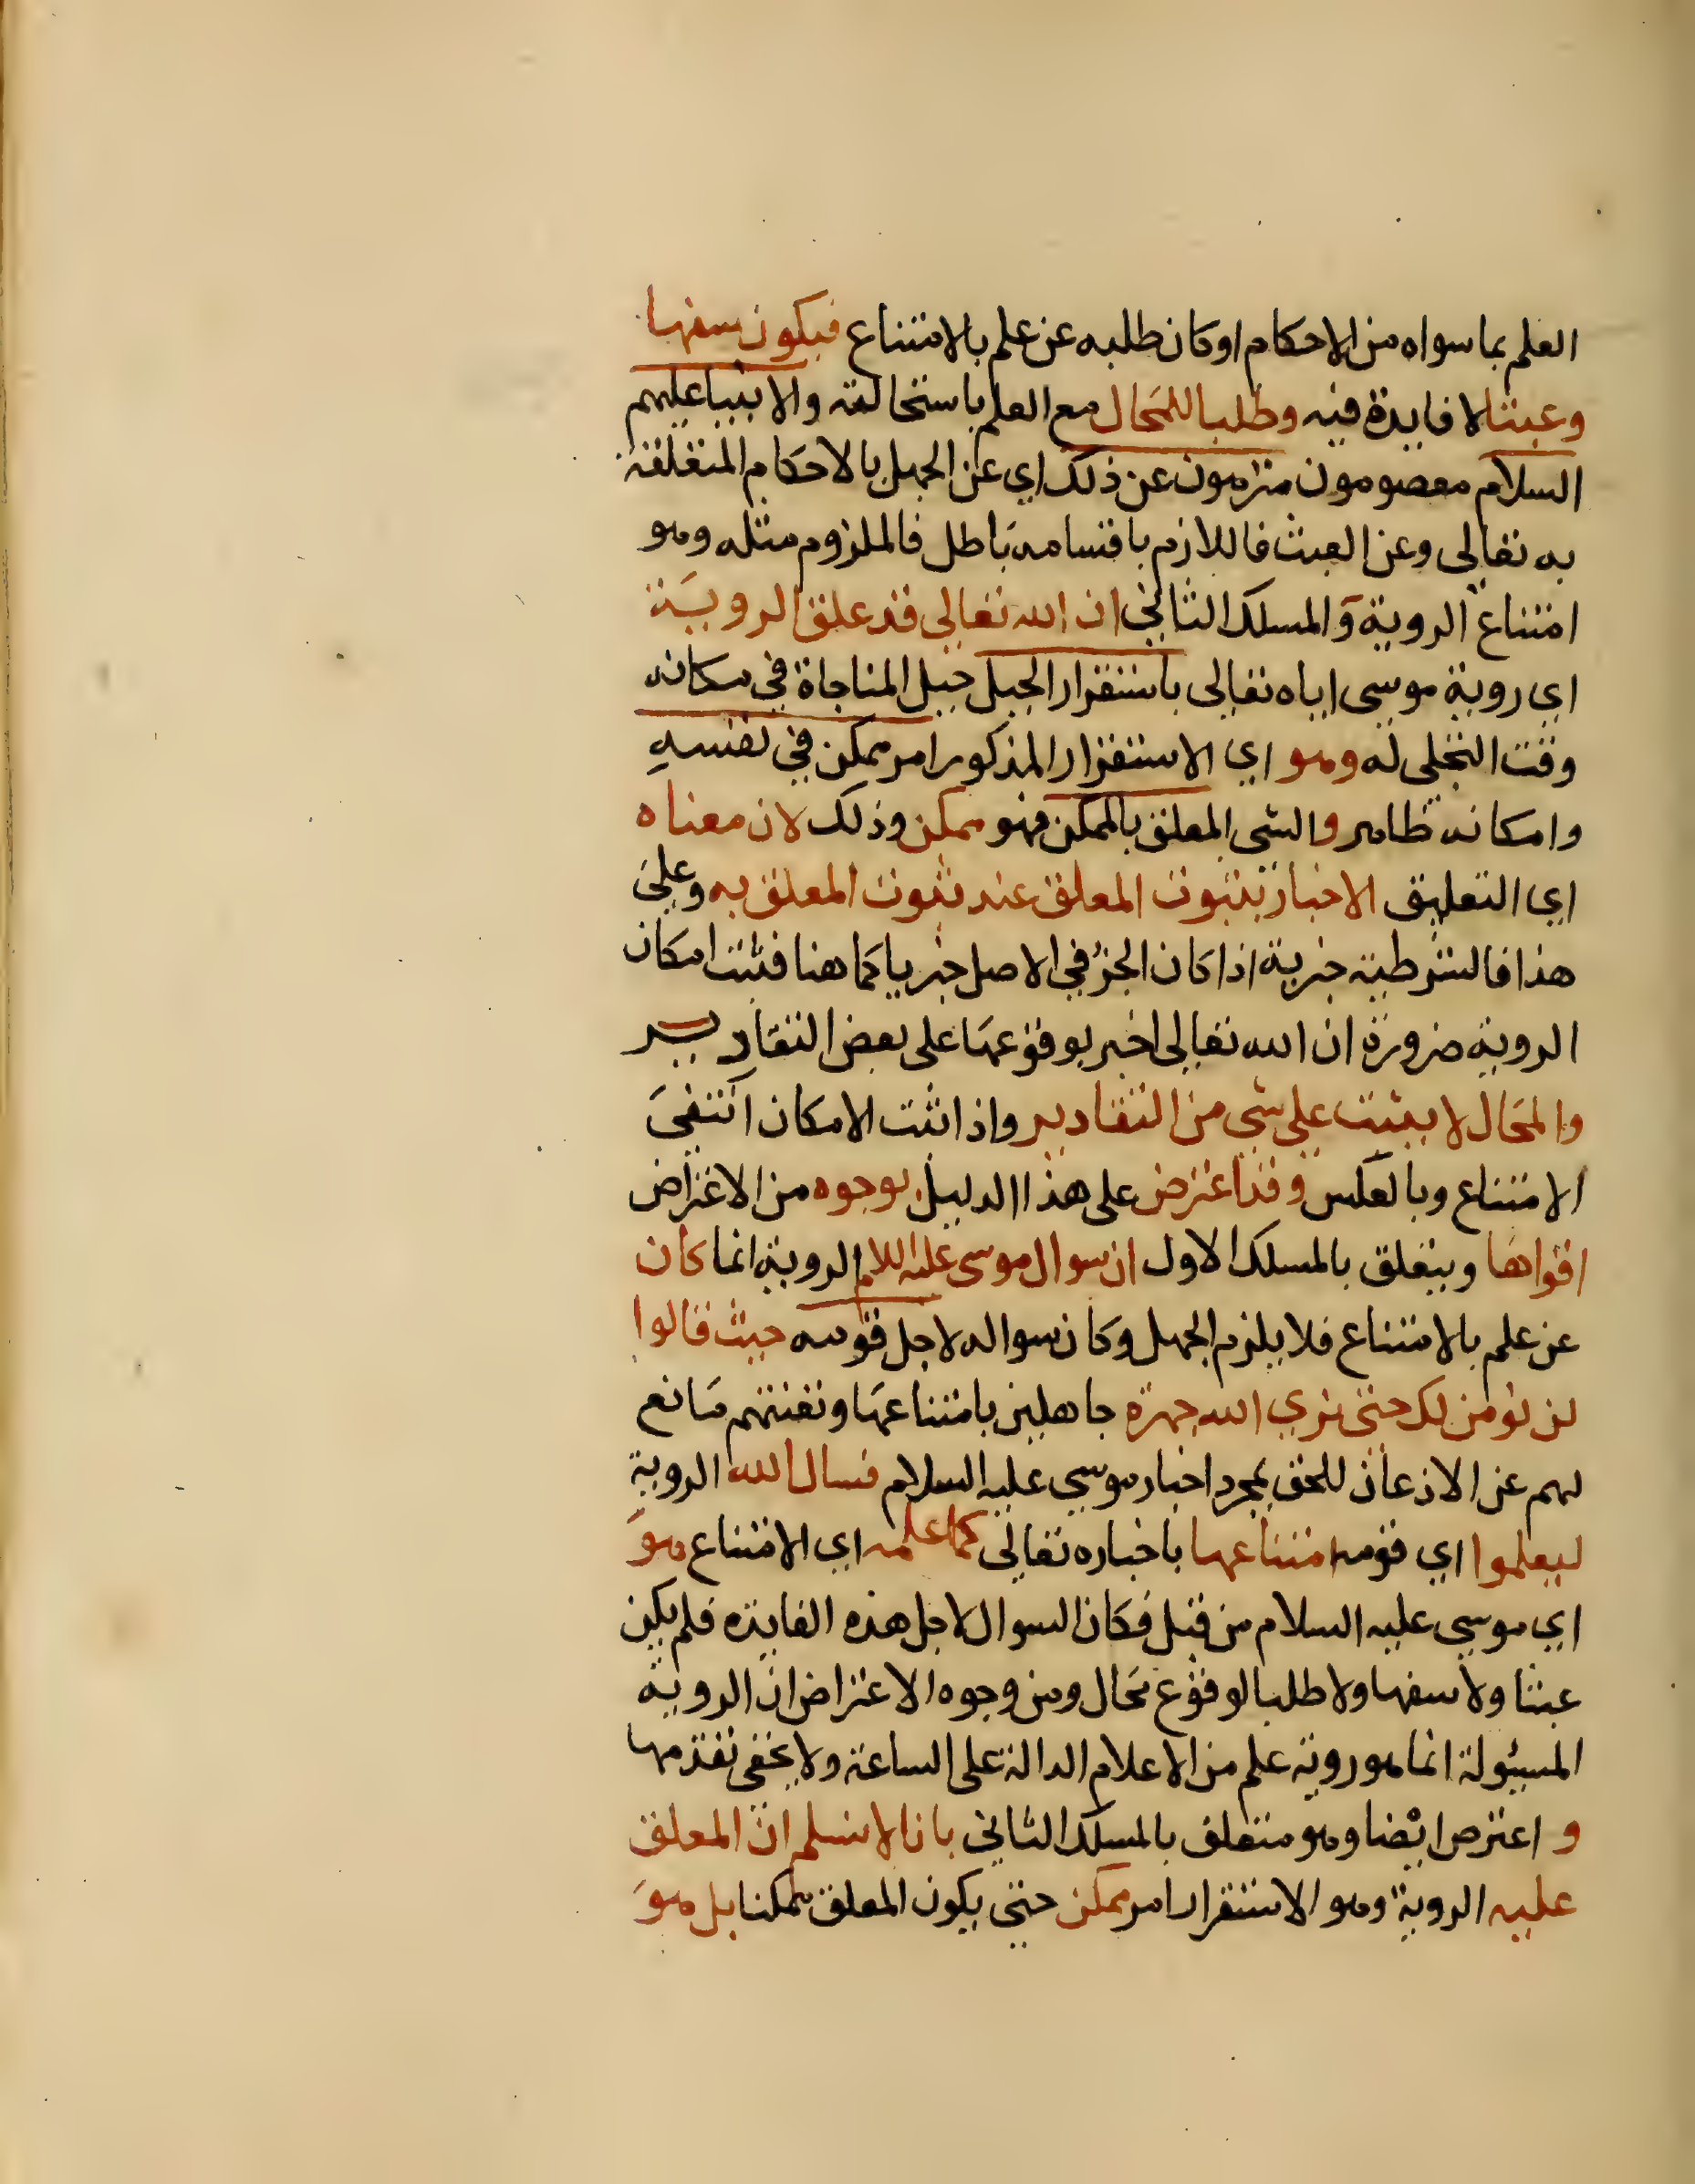 العلم بما سواه من الاحكام او كان طلبه عن علم بالامتناع فيكون سفها
وعبثا لا فايدة فيه وطلبا للمحال مع العلم باستحالته والانبيا عليهم
السلام معصومون منزهون عن ذلك اي عن الجهل بالاحكام المتعلقة
به تعالى وعن العبث فاللازم باقسامه باطل فالملزوم مثله وهو
امتناع الروية والمسلك الثاني ان الله تعالى قد علق الروية
اي روية موسى اياه تعالى باستقرار الجبل جبل المناجاة في مكانه
وقت التجلى له وهو اي الاستقرار المذكور امر ممكن في نفسه
وامكانه ظاهر والشي المعلق بالممكن فهو ممكن وذلك لان معناه
اي التعليق الاخبار بثبوت المعلق عند ثبوت المعلق به وعلى
هذا فالشرطية خبرية اذا كان الجزء في الاصل خبريا كما هنا فثبت امكان
الروية ضرورة ان الله تعالى اخبر بوقوعها على بعض التقادير
والمحال لا يثبت على شي من التقادير واذا ثبت الامكان انتفى
الامتناع وبالعكس وقد اعترض على هذا الدليل بوجوه من الاعتراض
اقواها ويتعلق بالمسلك الاول ان سوال موسى عليه اللام الروية انما كان
عن علم بالامتناع فلا يلزم الجهل وكان سواله لاجل قومه حيث قالوا
لن نومن لك حتى نرى الله جهرة جاهلين بامتناعها وتعنتهم مانع
لهم عن الاذعان للحق بمجرد اخبار موسى عليه السلام فسال الله الروية
ليعلموا اي قومه امتناعها باخباره تعالى كما علمه اي الامتناع هو
اي موسى عليه السلام من قبل فكان السوال لاجل هذه الفايده فلم يكن
عبثا ولا سفها ولا طلبا لوقوع محال ومن وجوه الاعتراض ان الروية
المسيولة انما هو روية علم من الاعلام الدالة على الساعة ولا يخفى تقدمها
و اعترض ايضا وهو متعلق بالمسلك الثاني بانا لا نسلم ان المعلق
عليه الروية وهو الاستقرار امر ممكن حتى يكون المعلق ممكنا بل هو